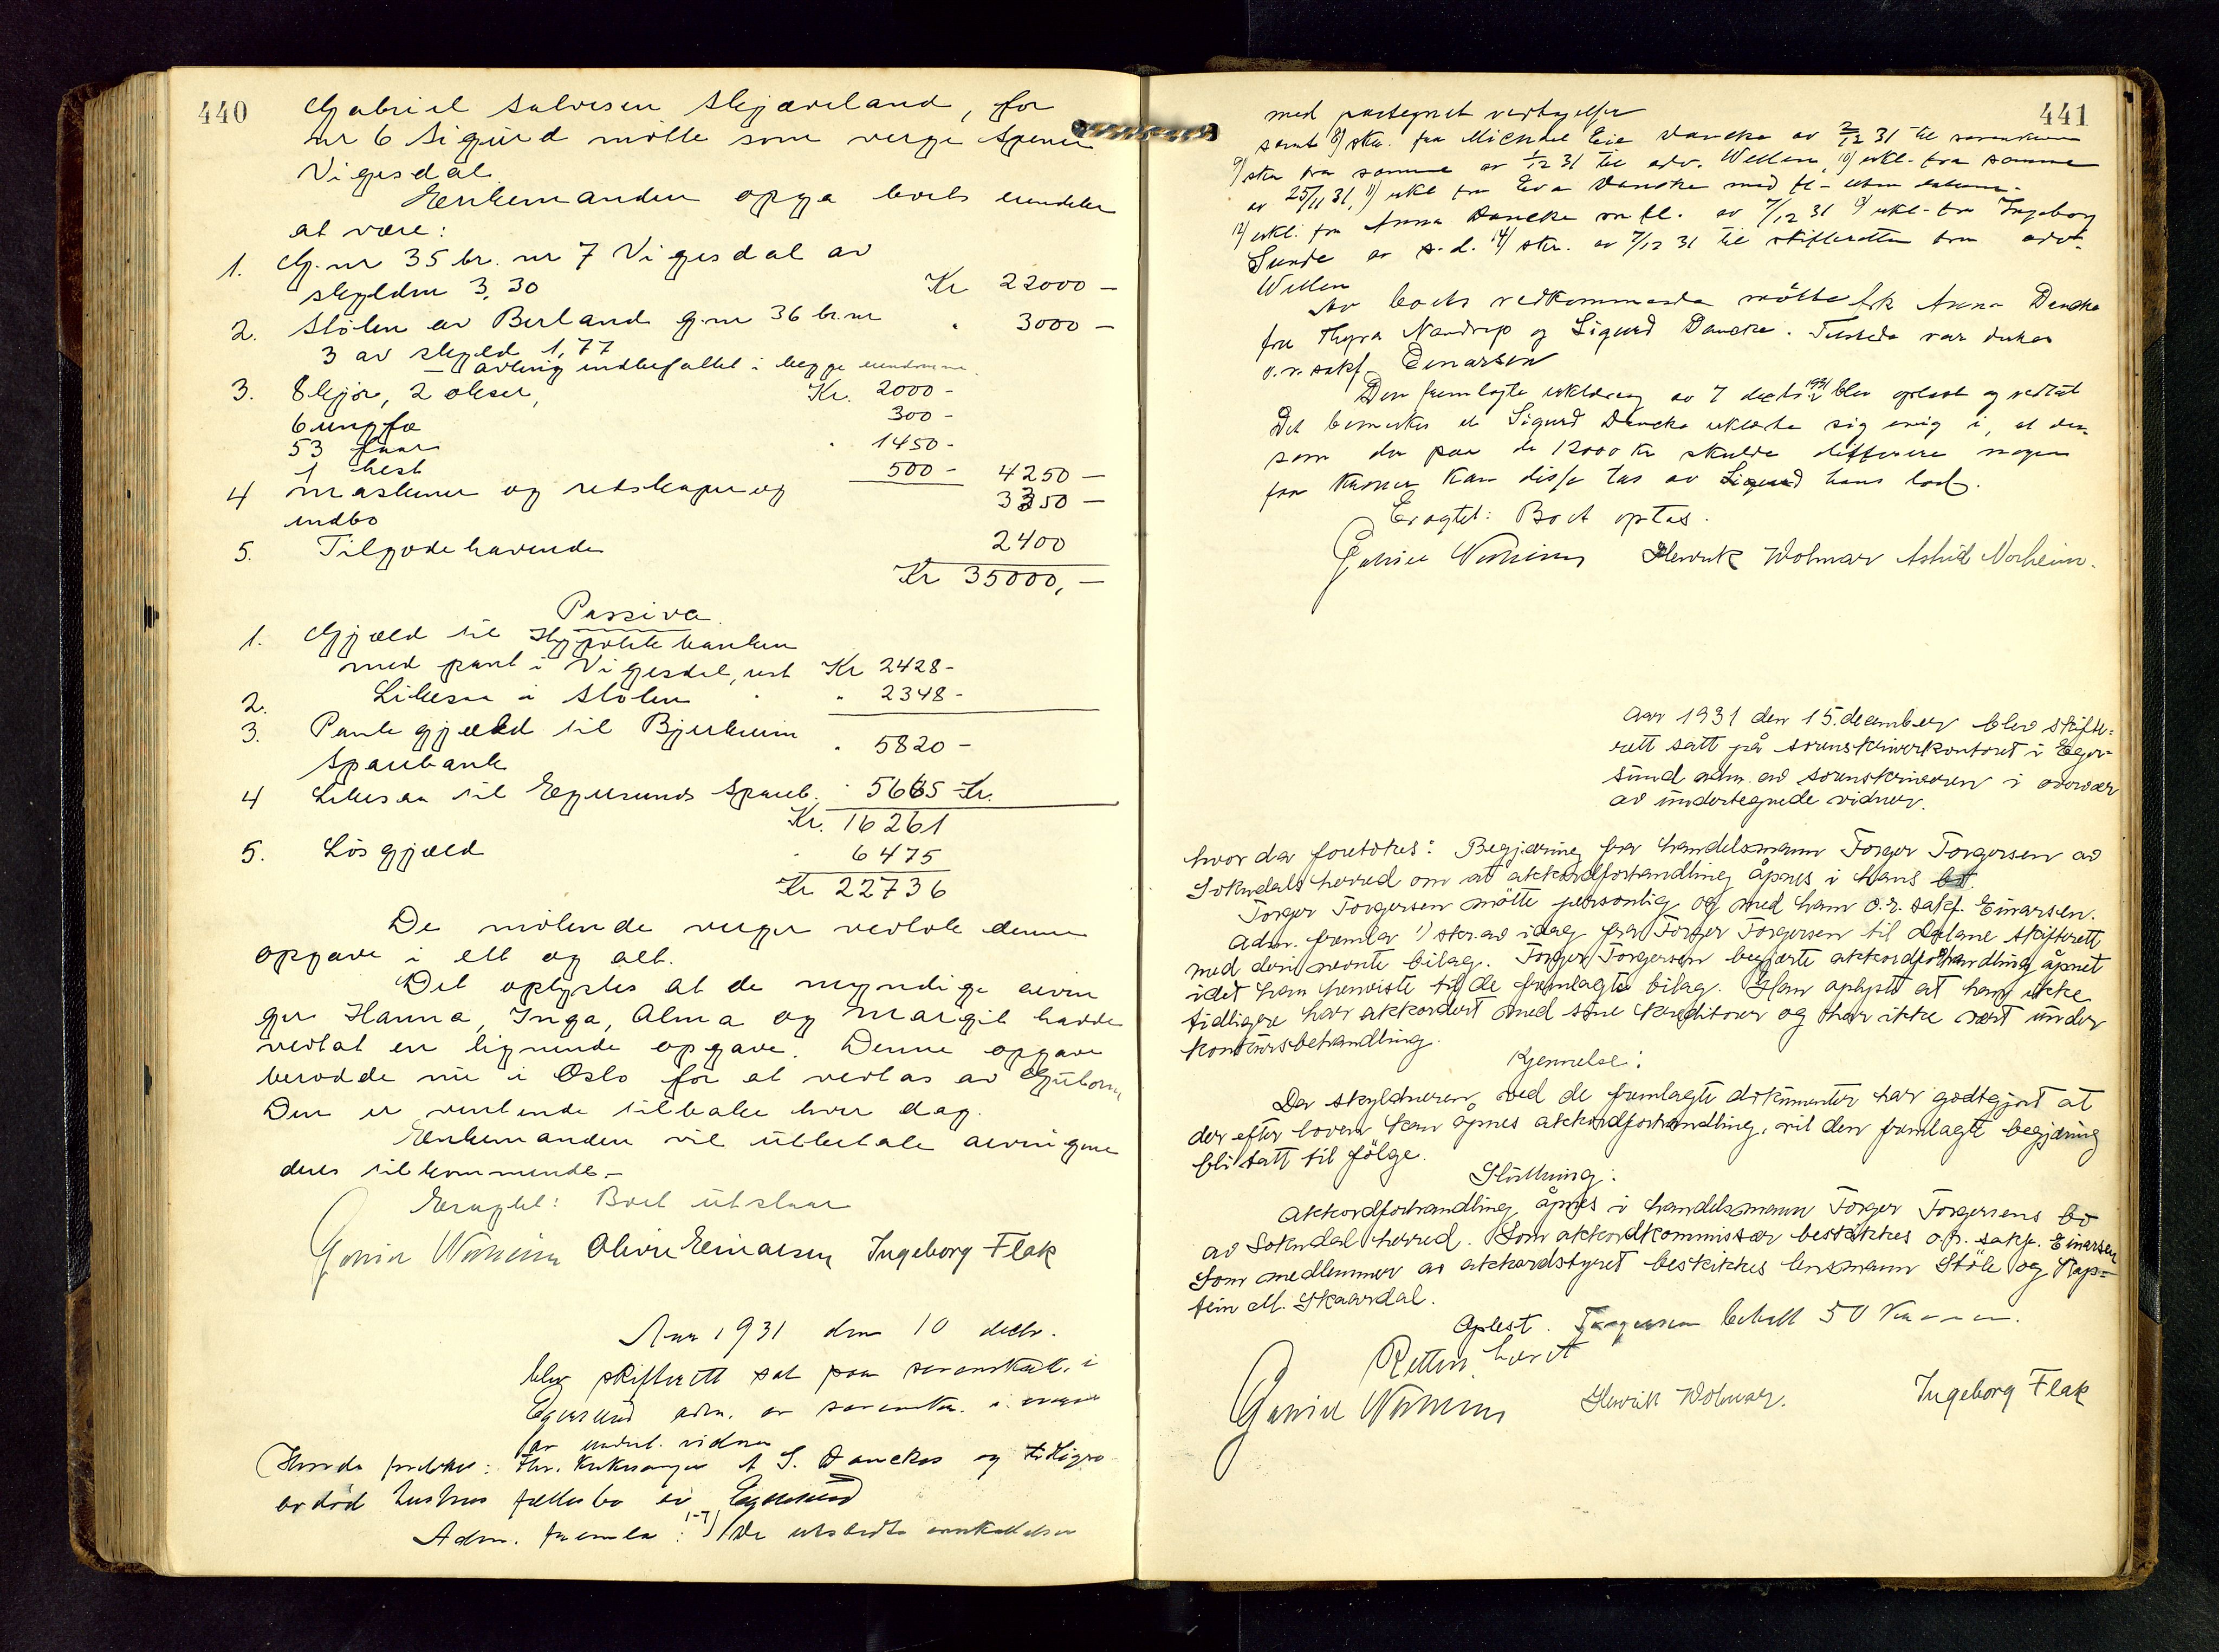 440
Gabriel Salvesen Skjæveland, for
nr 6 Sigurd møtte som verge
Vigesdal.
Enkemanden opga boets eiendeler
at være:
1. G.nr 35 br. nr 7 Vigesdal av
skylden 3,30 Kr 22000 -
2. Stølen av Berland g.nr 36 br.nr " 3000 -
3 av skyld 1,77
- avling indbefattet i begge eiendomme.
3. 8 kjør, 2 okser, Kr. 2000 -
6 ungfæ 300 -
53 faar " 1450 -
1 hest 500 - 4250 -
4 Maskiner og redskaper og 3350 -
indbo
5. Tilgodehavende 2400
Kr 35000, -
Passiva
1. Gjæld til Hypotekbanken
med pant i Vigesdal, rest Kr 2428 -
2. Likesaa i Stølen " " 2348 -
3. Pantegjæld til Bjerkreim
Sparebank " 5820 -
4 Likesaa til Egersunds Spareb. " 5665 Kr.
Kr. 16261
5. Løsgjæld " 6475
Kr 22736
De møtende verger vedtok denne
opgave i ett og alt.
Det oplystes at de myndige arvin
ger Hanna, Inga, Alma og Margit hadde
vedtat en lignende opgave. Denne opgave
berodde nu i Oslo for at vedtas av Guttorm,
Den er ventende tilbake hver dag.
Enkemanden vil utbetale arvingene
deres tilkommende. -
Eragtet: Boet utstaar
Olivie Einarsen Ingeborg Flak
Aar 1931 den 10 decbr.
blev skifterett sat paa sorenskr.k. i
Egersund adm. av sorenskr. i nærv
av undert. vidner
Hvorda foretokes: Fhv. kirkesanger A S. Danckes og tidligere
avdød hustrus fællesbo av Egersund
Adm. fremla: 1-7) De utstedte innkallelser
441
med paategnet vedtagelse
samt 8) skr. fra Michael Eie Dancke av 2/12 31 til sorenskriveren
9) skr fra samme av 1/12 31 til adv. Wellen, 10) erkl. fra samme
av 25/11 31, 11) erkl fra Eva Dancke med fl - uten datum -
12) erkl. fra Anna Dancke m fl. av 7/12 31 erkl. fra Ingeborg
Sunde av s. d. 14) skr. av 7/12 31 til skifteretten fra adv.
Wellen
Av boets vedkommende møtte frk Anna Dancke
fru Thyra Nandrup og Sigurd Dancke. Tilstede var dessuten
o.r. sakf. Einarsen
Den fremlagte erklæring av 7 decbr. 1931 blev oplest og vedtat
Det bemerkes at Sigurd Dancke erklærte sig enig i, at der
som der paa de 12000 kr skulde differere nogen
faa kroner kan disse tas av Sigurd hans lod.
Eragtet: Boet optas.
Henrik Wolmar Astrid Norheim.
Aar 1931 den 15. december blev skifte-
rett satt på sorenskriverkontoret i Eger-
sund adm. av sorenskriveren i overvær
av undertegnede vidner.
hvor da foretokes: Begjæring fra handelsmann Torger Torgersen av
Sokndals herred om at akkordforhandling åpnes i hans bo.
Torger Torgersen møtte personlig og med ham o.r. sakf. Einarsen.
Adm. fremla 1) skr. av idag fra Torger Torgersen til Dalane skifterett
med deri nevnte bilag. Torger Torgersen begjærte akkordforhandling åpnet
idet han henviste til de fremlagte bilag. Han oplyste at han ikke
tidligere har akkordert med sine kreditorer og har ikke vært under
konkursbehandling.
Kjennelse:
Da skyldneren ved de fremlagte dokumenter har godtgjort at
der efter loven kan åpnes akkordforhandling, vil den fremlagte begjæring
bli tatt til følge.
Slutning:
Akkordforhandling åpnes i handelsmann Torger Torgersens bo
av Sokndal herred. Som akkordkommissær beskikkes o.r. sakf. Einarsen
Som medlemmer av akkordstyret beskikkes lensmann Støle og kap-
tein M. Skaardal.
Oplest. Torgersen betalt 50 Kroner.
Retten hævet
Henrik Wolmar. Ingeborg Flak